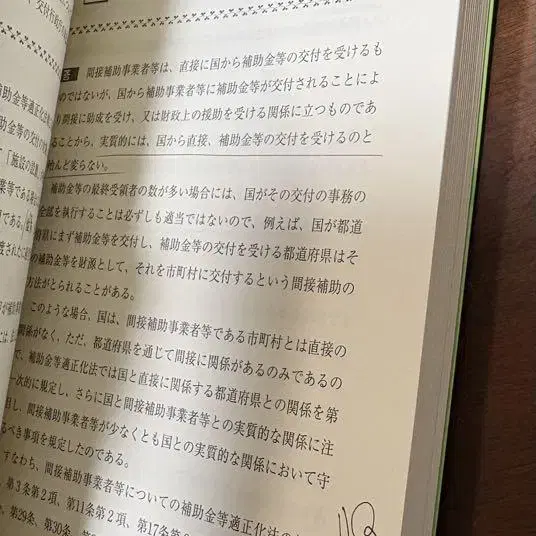 答 間接補助事業者等は、直接に国から補助金等の交付を受けるも
のではないが、国から補助事業者等に補助金等が交付されることによ
り間接に助成を受け、又は財政上の援助を受ける関係に立つものであ
ることから、実質的には、国から直接、補助金等の交付を受けるのと
殆んど変らない。
補助金等の最終受領者の数が多い場合には、国がその交付の事務の
全部を執行することは必ずしも適当ではないので、例えば、国が都道
府県にまず補助金等を交付し、補助金等の交付を受ける都道府県はそ
の補助金等を財源として、それを市町村に交付するという間接補助の
方法がとられることがある。
このような場合、国は、間接補助事業者等である市町村とは直接の
関係がなく、ただ、都道府県を通じて間接に関係があるのみであるの
で、補助金等適正化法では国と直接に関係する都道府県との関係を第
一次的に規定し、さらに国と間接補助事業者等との実質的な関係に注
目し、間接補助事業者等が少なくとも国との実質的な関係において守
るべき事項を規定したのである。
すなわち、間接補助事業者等についての補助金等適正化法の
、第3条第2項、第11条第2項、第17条第
、第29条、第30条、第
補助金等適正化法
補助金等の交付の
「施設の設置
業等である
である。
渡された